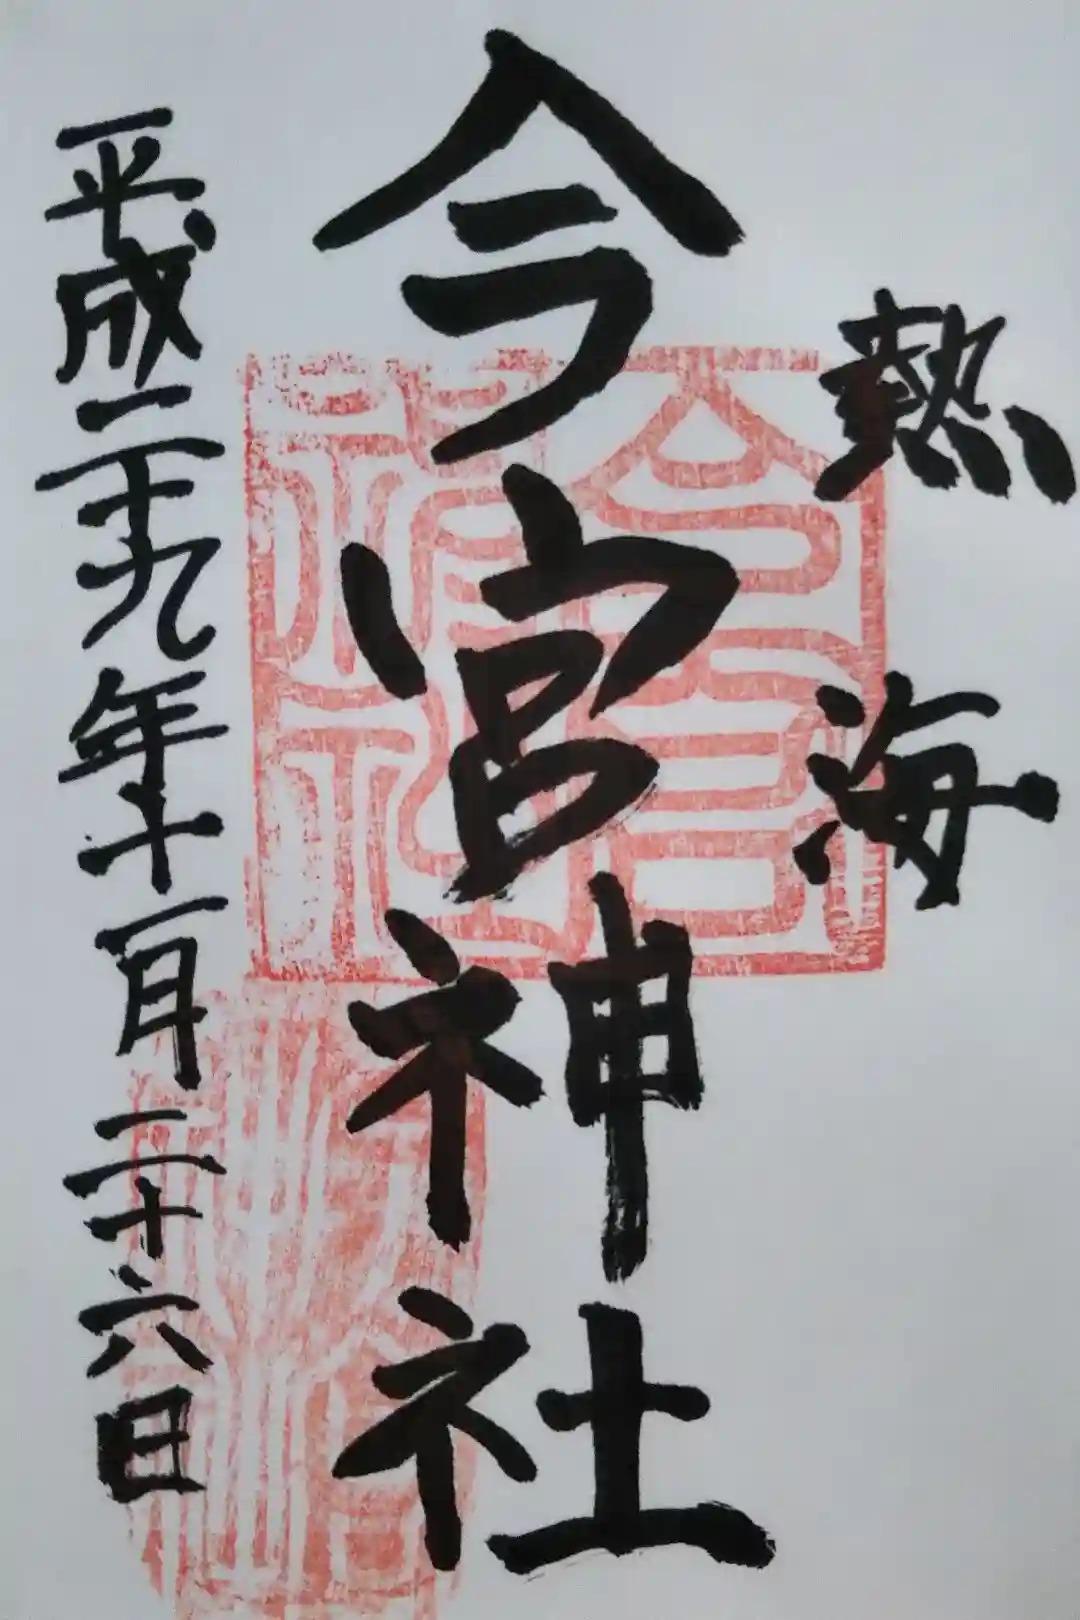 熱海
今宮神社
平成二十九年十一月二十六日
今宮神社